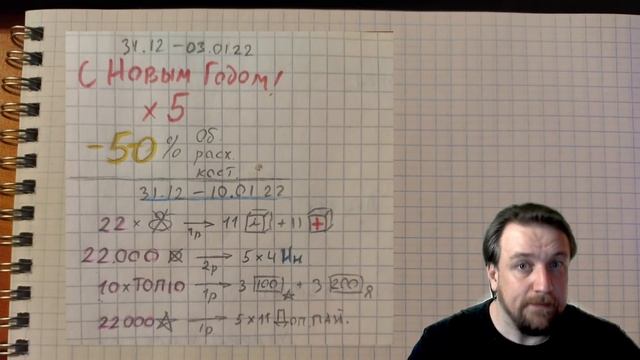 31.12 - 03.01.22
С Новым Годом!
x 5
-50% Об
расх.
каст.
31.12 - 10.01.22
22 x → 11 + 11 +
1р
22.000 → 5 x 4
2р
10 x ТОП10 → 3 100 + 3 200
1р
22000 → 5 x 11 Доп пай.
1р